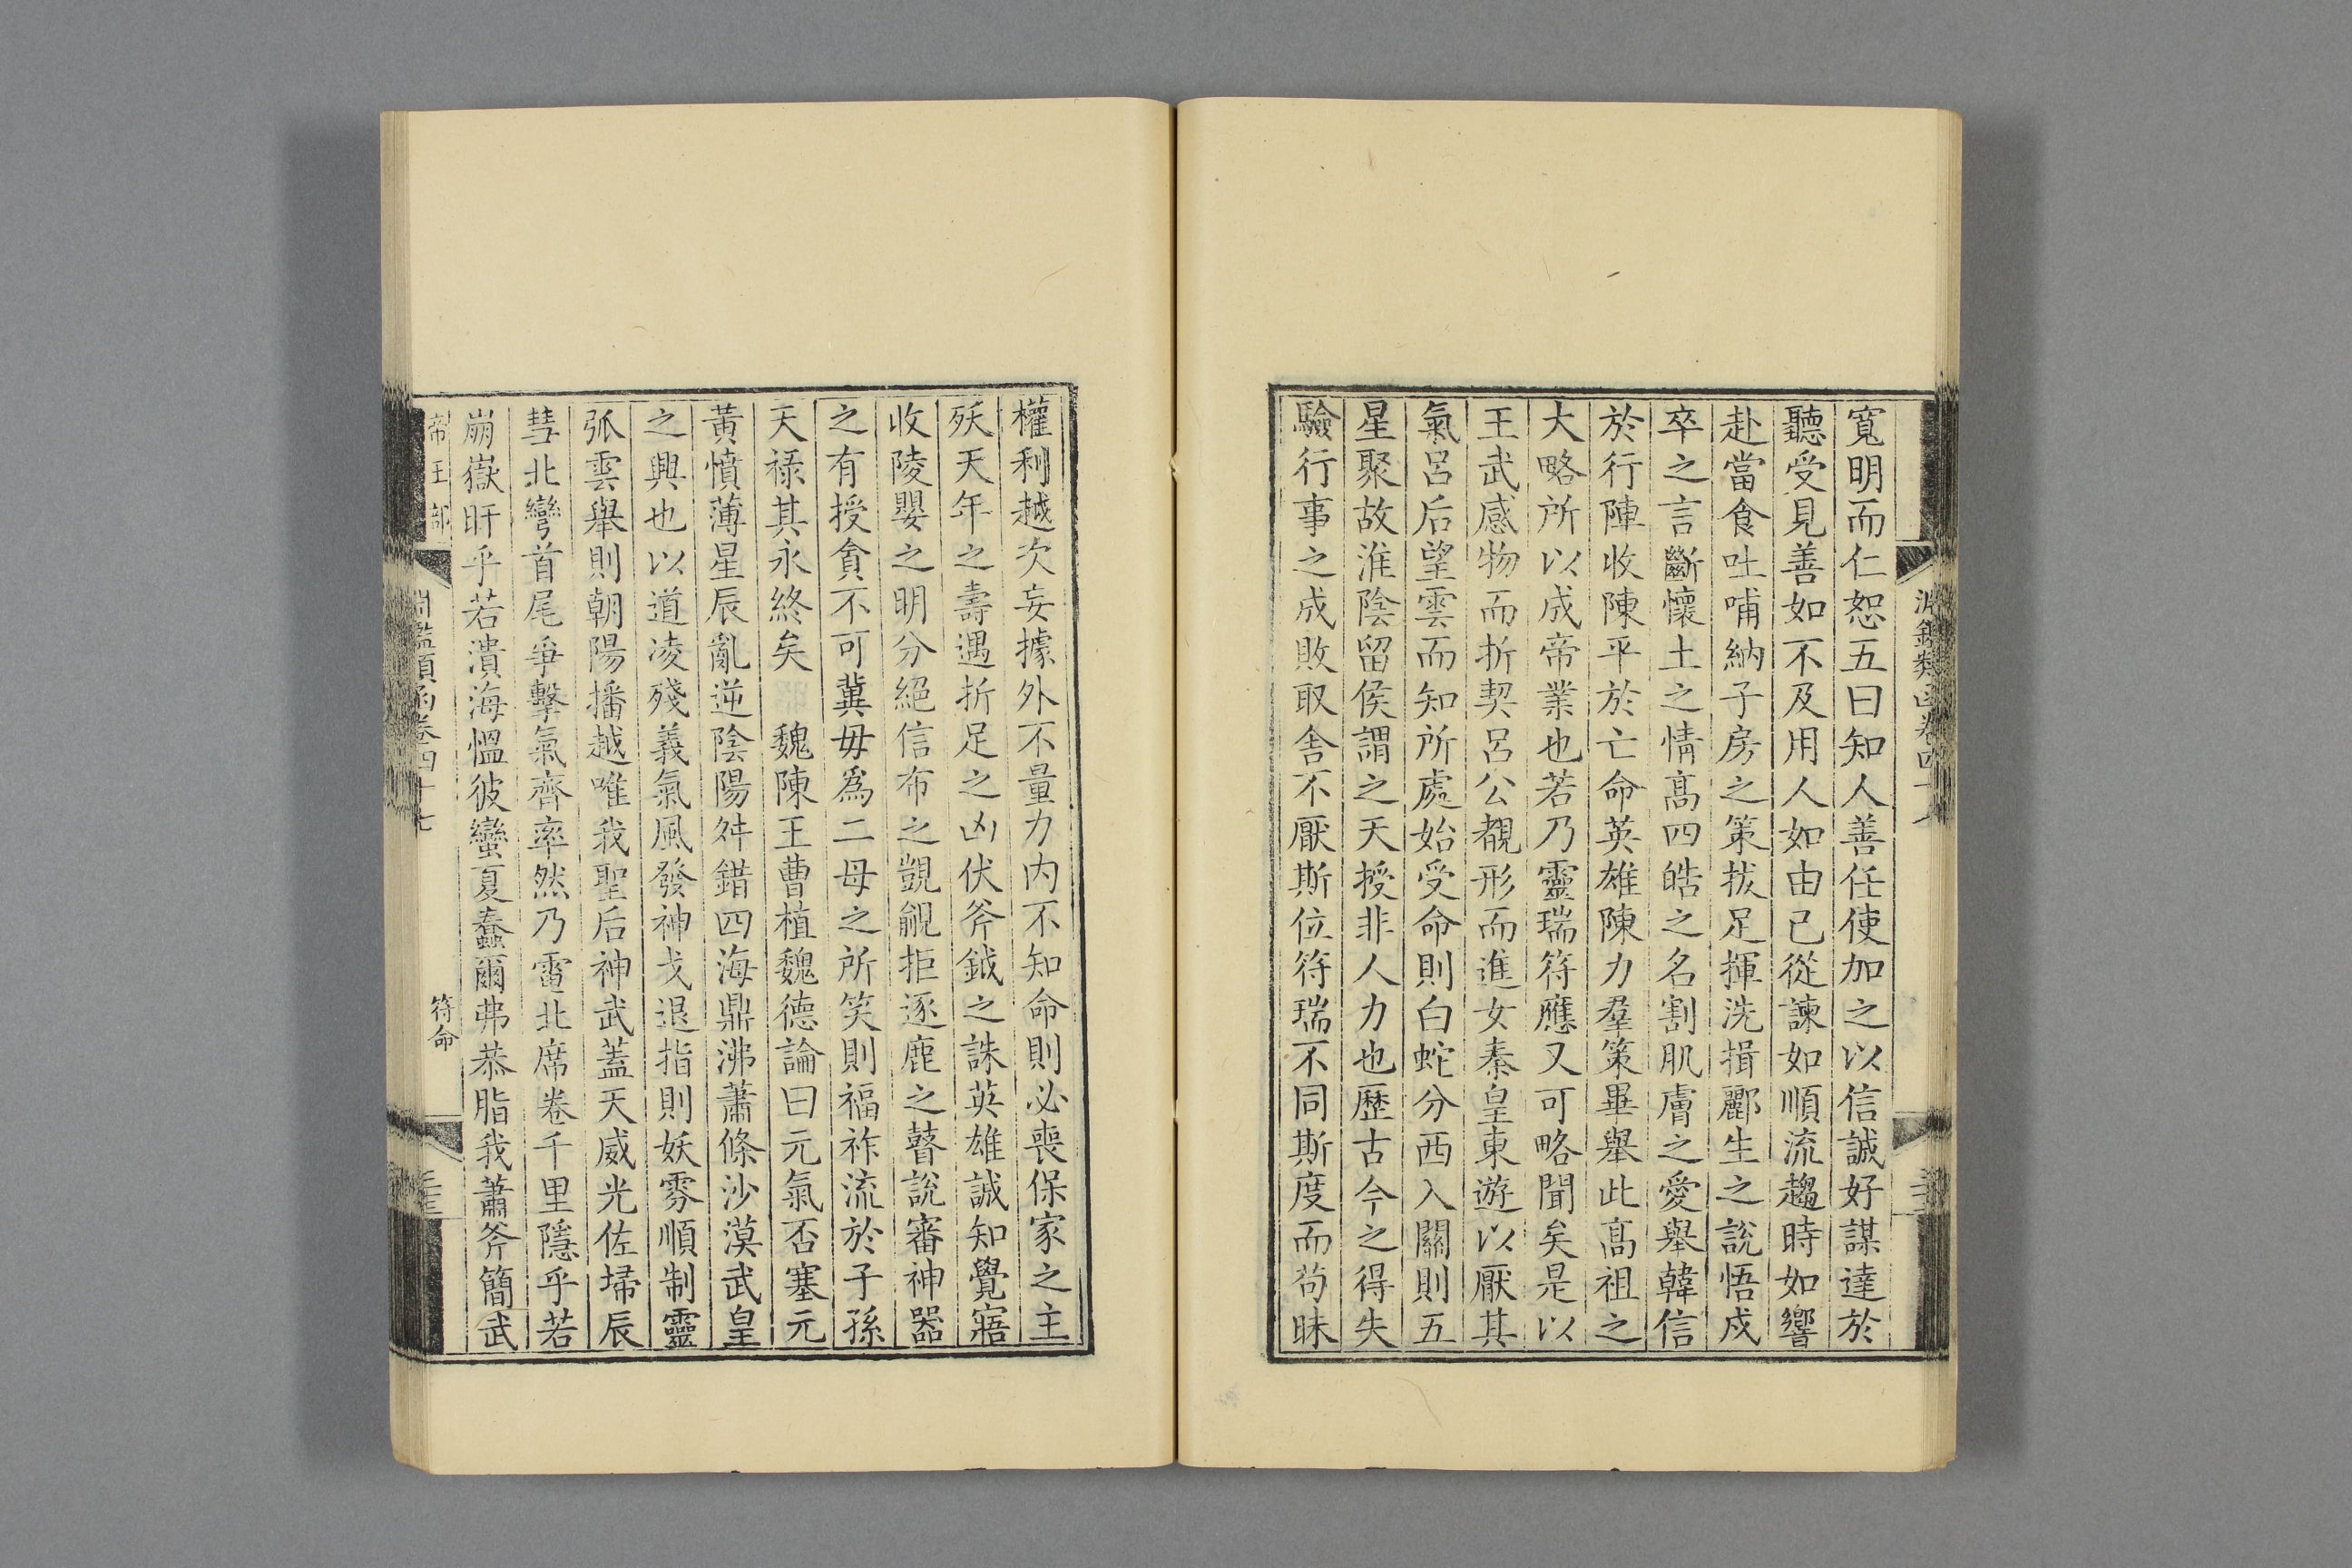 寬明而仁恕五曰知人善任使加之以信誠好謀達於
聽受見善如不及用人如由己從諫如順流趨時如響
赴當食吐哺納子房之策拔足揮洗揖酈生之說悟戍
卒之言斷懷土之情高四皓之名割肌膚之愛舉韓信
於行陣收陳平於亡命英雄陳力羣策畢舉此高祖之
大略所以成帝業也若乃靈瑞符應又可略聞矣是以
王武感物而折契呂公覩形而進女秦皇東遊以厭其
氣呂后望雲而知所處始受命則白蛇分西入關則五
星聚故淮陰留侯謂之天授非人力也歷古今之得失
驗行事之成敗取舍不厭斯位符瑞不同斯度而苟昧
權利越次妄據外不量力内不知命則必喪保家之主
殀天年之壽遇折足之凶伏斧鉞之誅英雄誠知覺寤
收陵嬰之明分絕信布之覬覦拒逐鹿之瞽說審神器
之有授貪不可冀毋爲二母之所笑則福祚流於子孫
天祿其永終矣 魏陳王曹植魏德論曰元氣否塞元
黃憤薄星辰亂逆陰陽舛錯四海鼎沸蕭條沙漠武皇
之興也以道凌殘義氣風發神戈退指則妖雰順制靈
弧雲舉則朝陽播越唯我聖后神武蓋天威光佐埽辰
彗北彎首尾爭擊氣齊率然乃電北席卷千里隱乎若
崩嶽旰乎若潰海慍彼蠻夏蠢爾弗恭脂我蕭斧簡武
帝王部
淵鑑類函卷四十七
符命